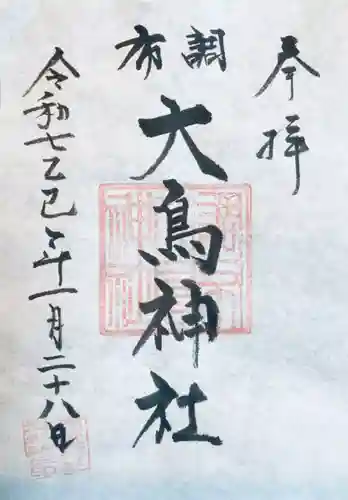 奉拝
調布
大鳥神社
令和七乙巳年一月二十八日